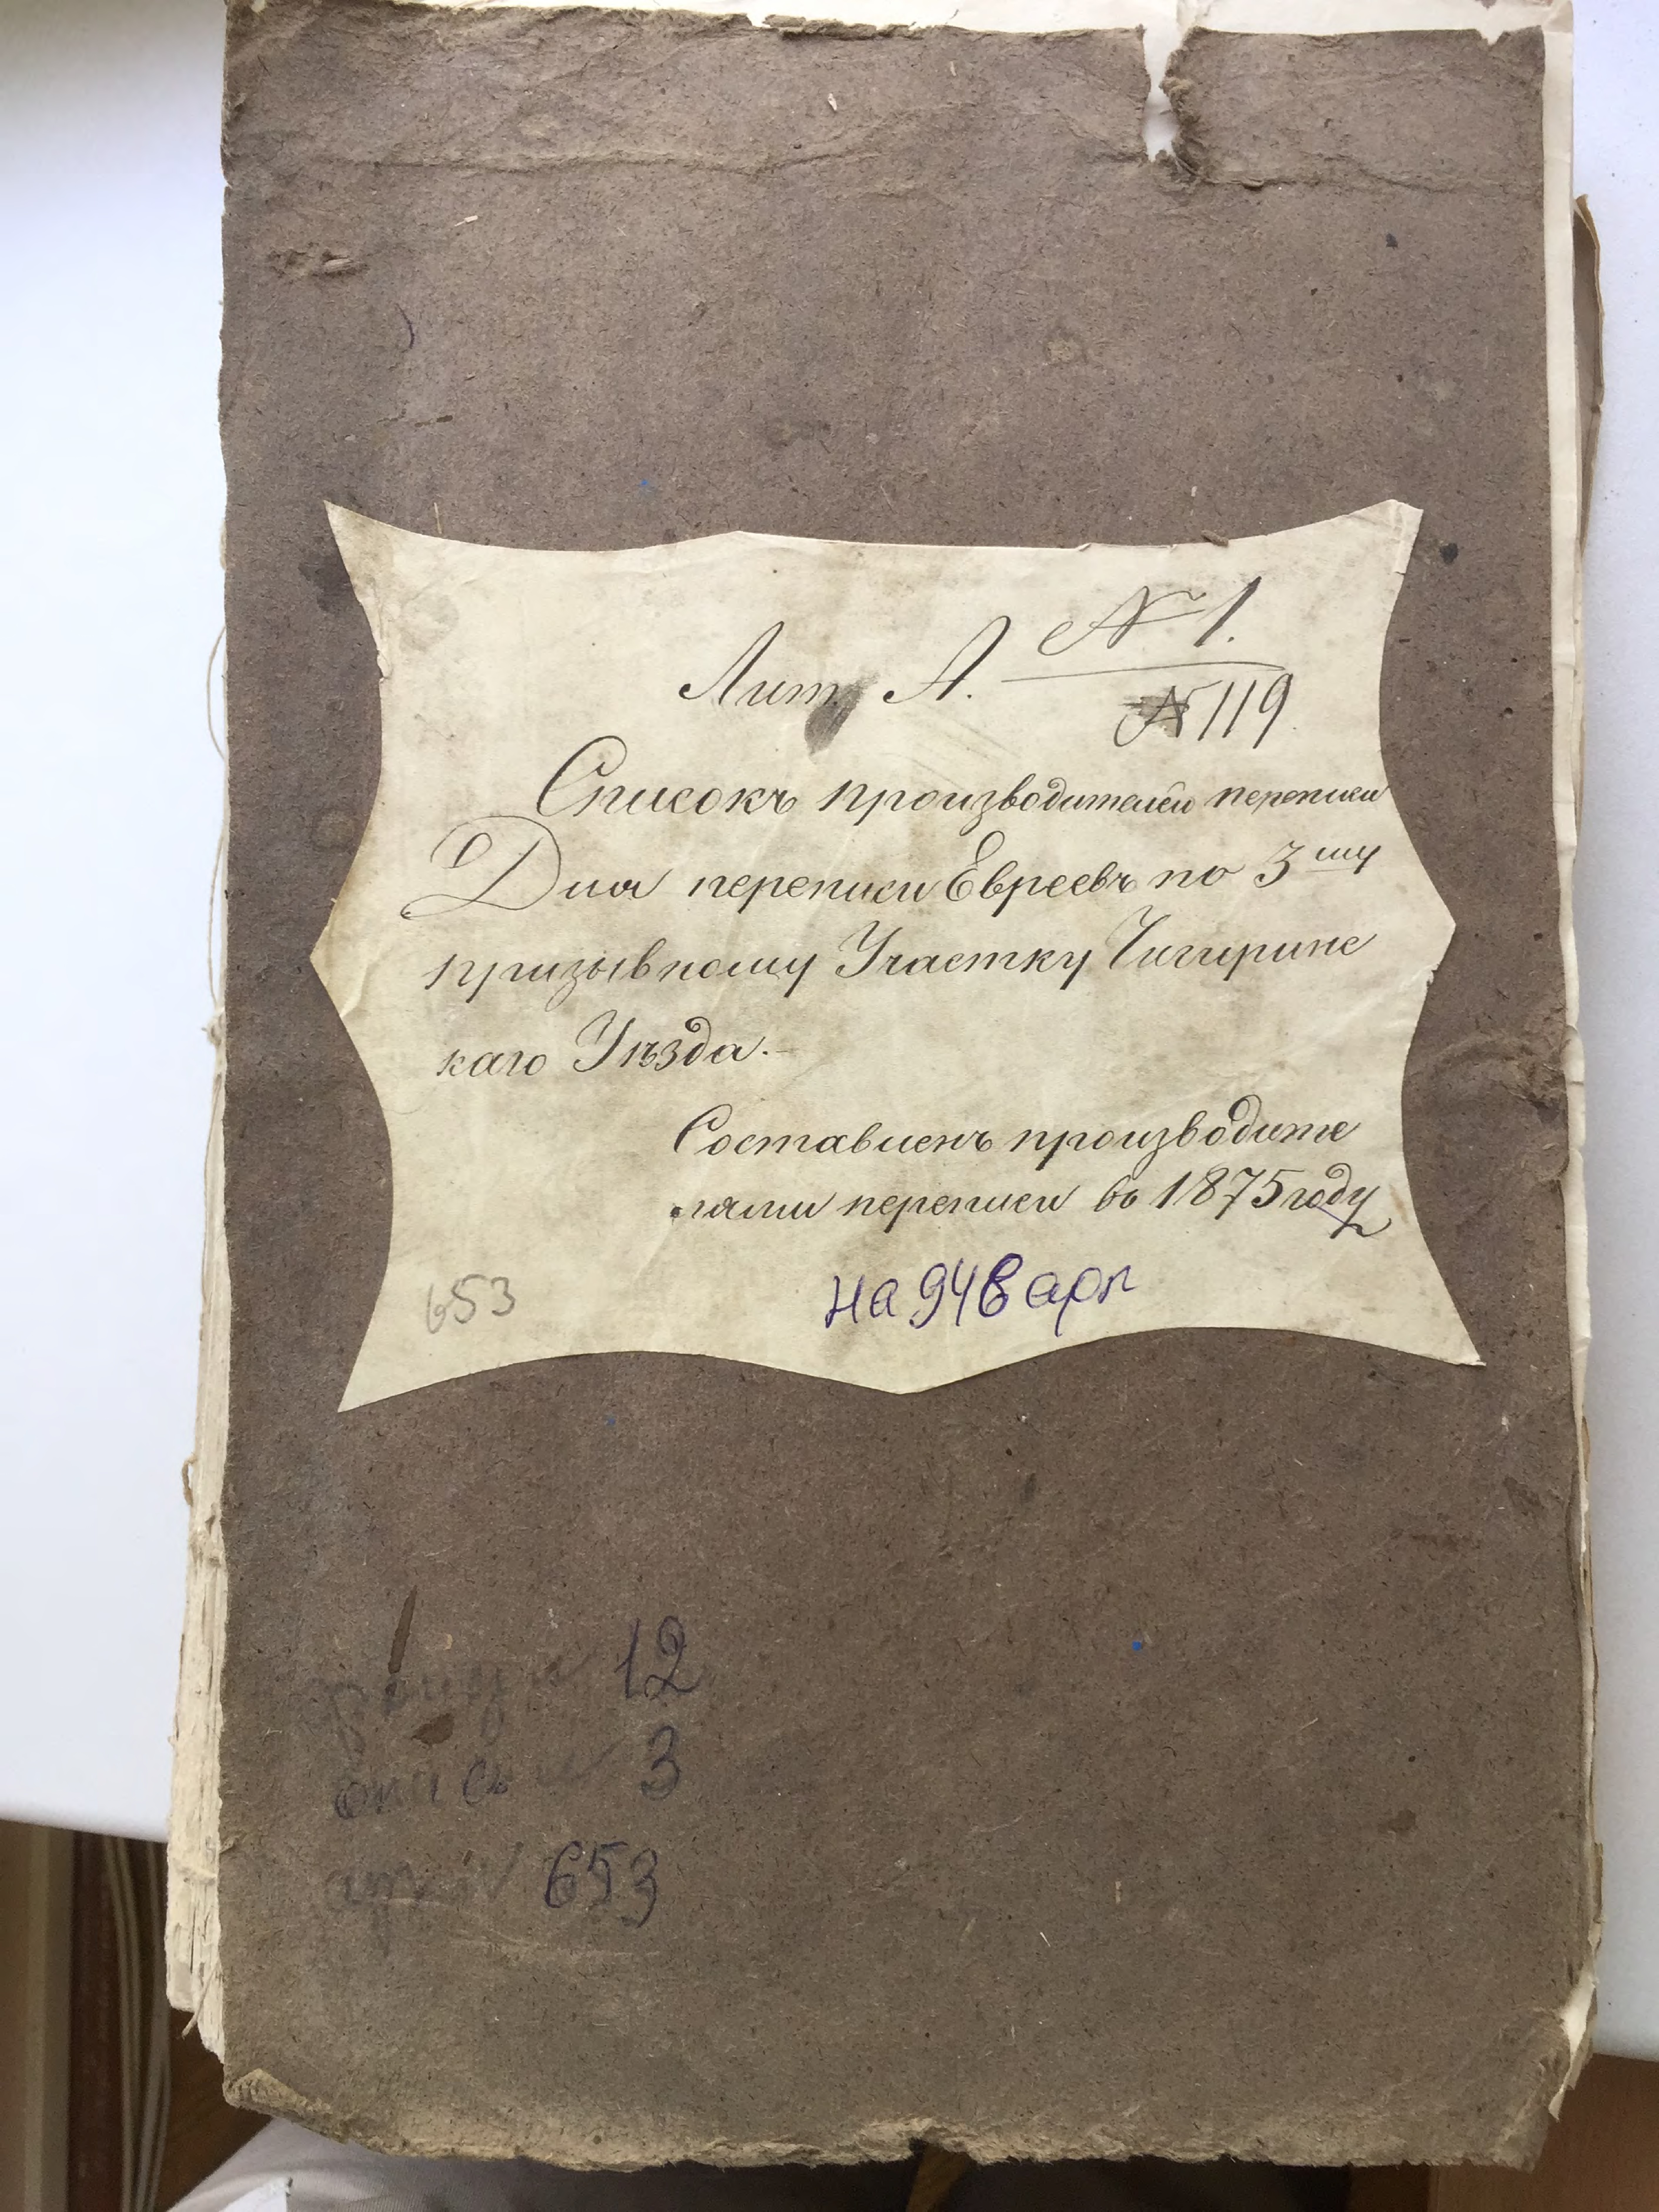 № 1.
Лит. А.
№ 119
Списокъ производителей переписи
Для переписи Евреевъ по 3му
призывному Участку Чигирине
каго Уѣзда.-
Составленъ производите
лями переписи въ 1875 году
на 948 арк
653
12
опись 3
653